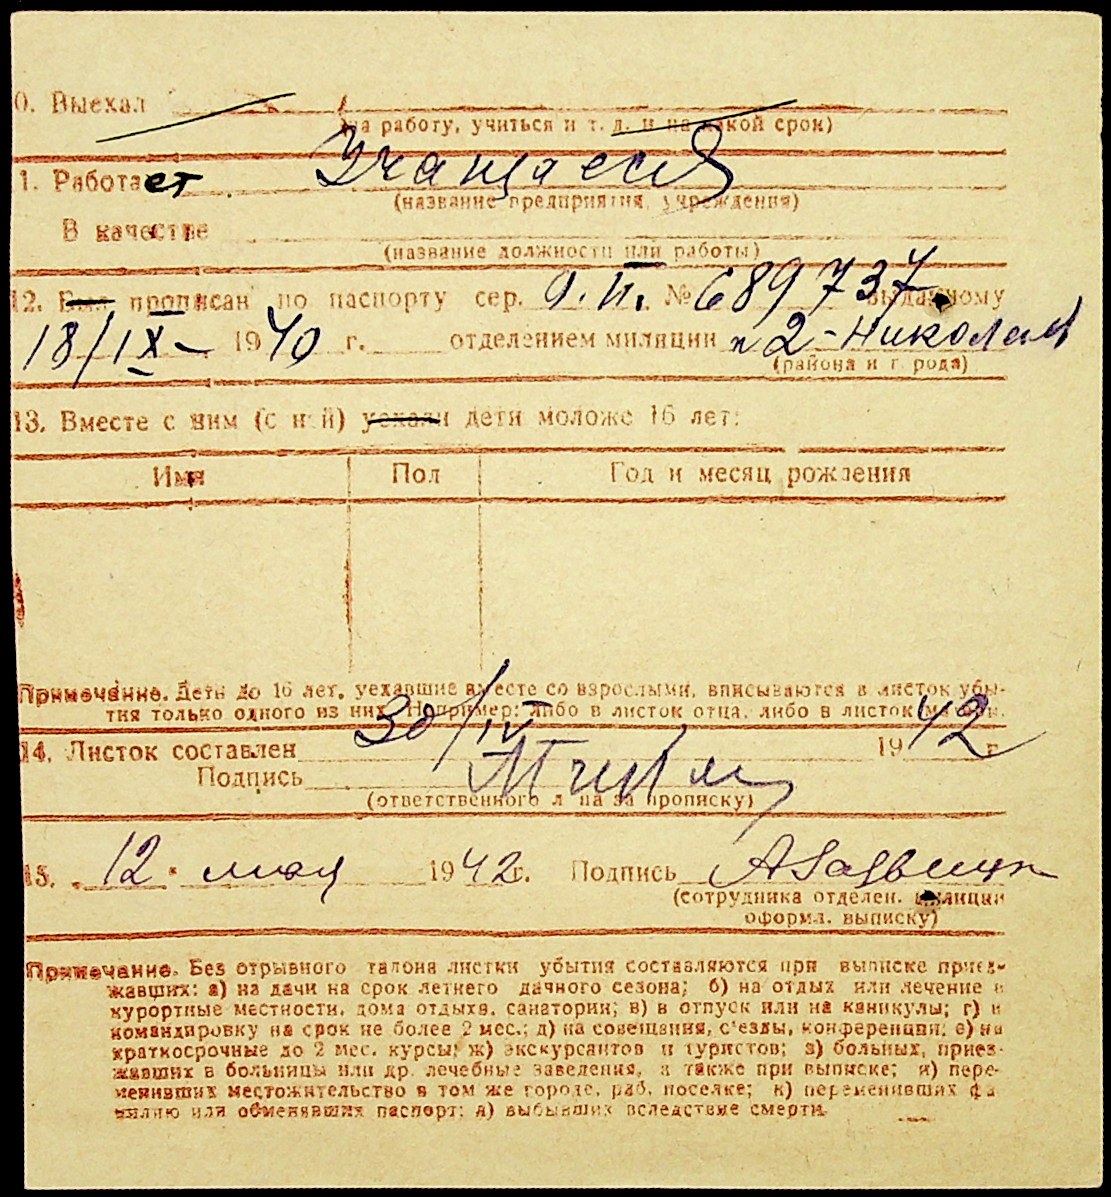 0. Выехал
(на работу, учиться и т. д. и на какой срок)
1. Работает Учащаяся
(название предприятия, учреждения)
В качестве
(название должности или работы)
12. Был прописан по паспорту сер. № 689737 выданному
18/IX- 1940 г. отделением милиции 2-Николаев
(района и города)
13. Вместе с ним (с ней) уехали дети моложе 16 лет:
Имя Пол Год и месяц рождения
Примечание. Дети до 16 лет, уехавшие вместе со взрослыми, вписываются в листок убы-
тия только одного из них. Например: либо в листок отца, либо в листок матери.
14. Листок составлен 30/IV 1942 г.
Подпись
(ответственного лица за прописку)
15. 12 мая 1942 г. Подпись
(сотрудника отделен. милиции
оформл. выписку)
Примечание. Без отрывного талона листки убытия составляются при выписке приез-
жавших: а) на дачи на срок летнего дачного сезона; б) на отдых или лечение в
курортные местности, дома отдыха, санатории; в) в отпуск или на каникулы; г) в
командировку на срок не более 2 мес.; д) на совещания, с'езды, конференции; е) на
краткосрочные до 2 мес. курсы; ж) экскурсантов и туристов; з) больных, приез-
жавших в больницы или др. лечебные заведения, а также при выписке; и) пере-
менивших местожительство в том же городе, раб. поселке; к) переменивших фа
милию или обменявших паспорт; л) выбывших вследствие смерти.